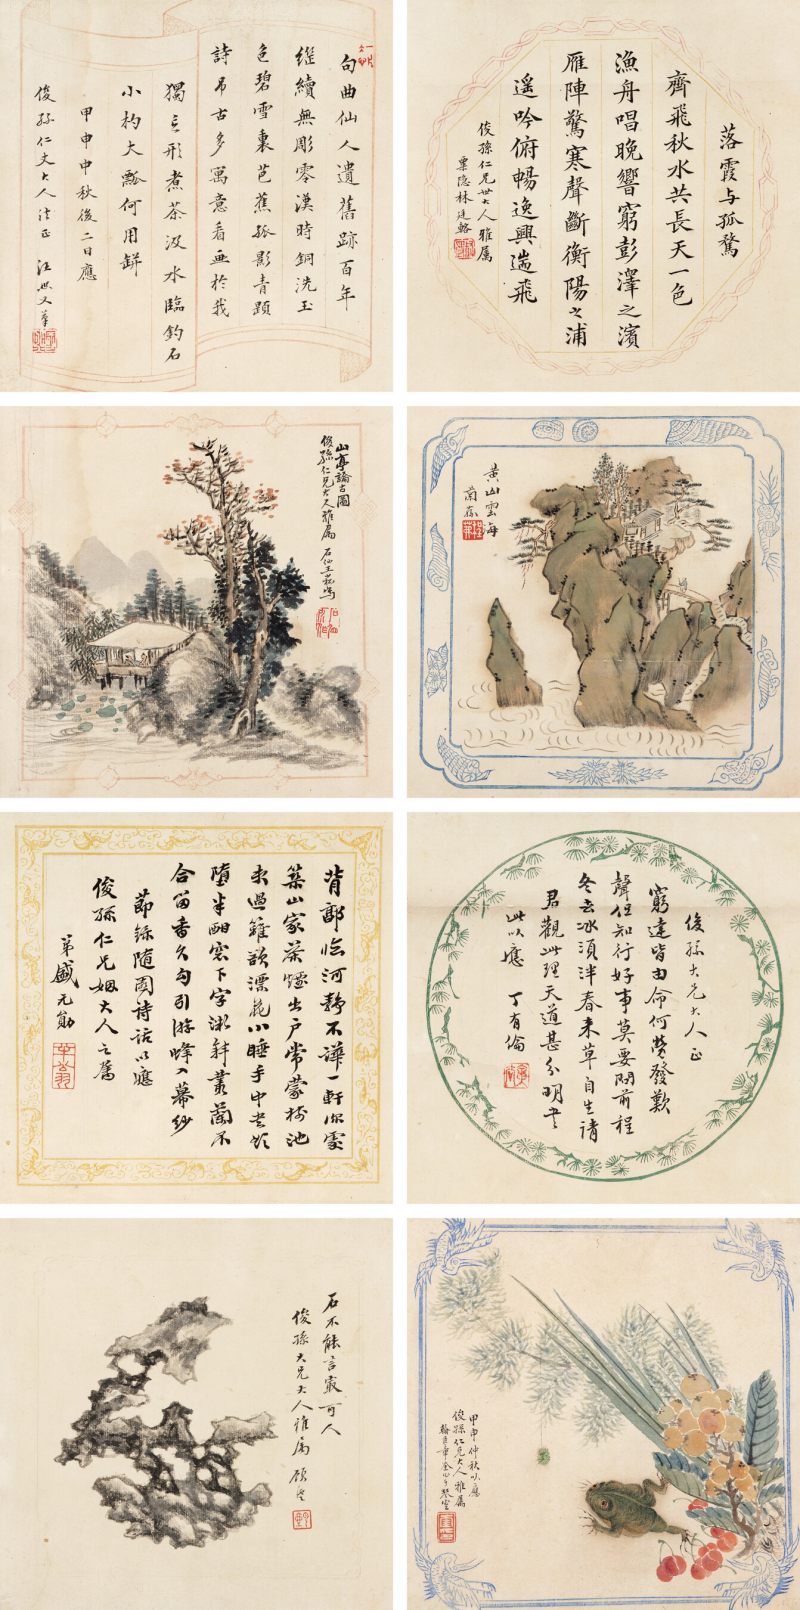 句曲仙人遺舊跡百年
繼續無彫零漢時銅洗玉
色碧雪裏芭蕉孤影青題
詩弔古多寓意看画於我
獨忘形煮茶汲水臨釣石
小杓大瓢何用缾
甲申中秋後二日應
俊孫仁丈大人法正
落霞与孤鶩
齊飛秋水共長天一色
漁舟唱晚響窮彭澤之濱
雁陣驚寒聲斷衡陽之浦
遥吟俯暢逸興遄飛
俊孫仁兄世大人雅属
粟隐林廷
山亭論古圖
俊孫仁兄大人雅属
石仙王
黄山雲海
蘭蓀
背郭临河静不譁一軒深處
築山家茶烟出户常蒙樹池
水過籬欲漂花小睡手中書欲
堕半酣窓下字渐斜叢蘭不
合留香久勾引游蜂入幕紗
節錄隨園诗话以應
俊孫仁兄姻大人之属
弟盛元勛
俊孫大兄大人正
窮達皆由命何勞發歎
聲但知行好事莫要問前程
冬去冰須泮春来草自生请
君觀此理天道甚分明書
此以應 丁有倫
石不能言最可人
俊孫大兄大人雅属
甲申仲秋以應
俊孫仁兄大人雅属